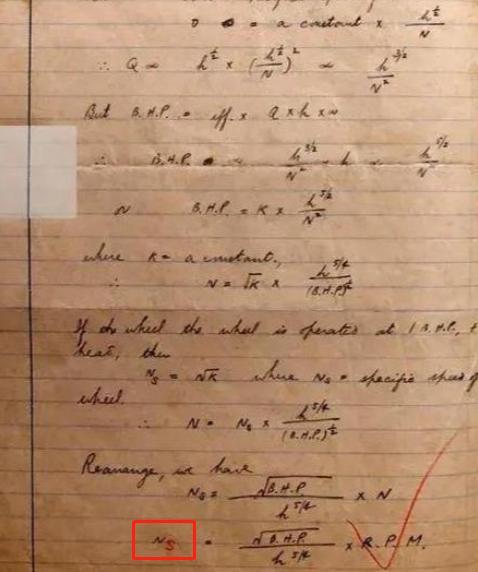 D = a constant × h^½/N
∴ Q ∝ h^½ × (h^½/N)² ∝ h^3/2/N²
But B.H.P. = eff. × Q × h × w
∴ B.H.P. ∝ h^3/2/N² × h ∝ h^5/2/N²
or B.H.P. = K × h^5/2/N²
where K = a constant.,
∴ N = √K × h^5/4/(B.H.P)^½
If the wheel the wheel is operated at 1 B.H.P.,
head, then
Ns = √K where Ns = specific speed of
wheel.
∴ N = Ns × h^5/4/(B.H.P.)^½
Rearrange, we have
Ns = √B.H.P./h^5/4 × N
Ns = √B.H.P./h^5/4 × R.P.M.